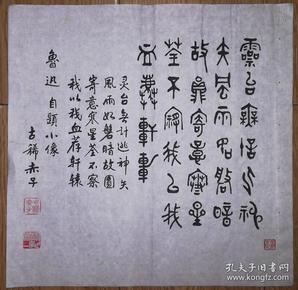 靈台無計逃神
矢風雨如磐暗
故園寄意寒星
荃不察我以我
血薦軒轅
灵台无计逃神矢
風雨如磐暗故園
寄意寒星荃不察
我以我血荐轩辕
魯迅 自題小像
古稀赤子
孔夫子旧书网